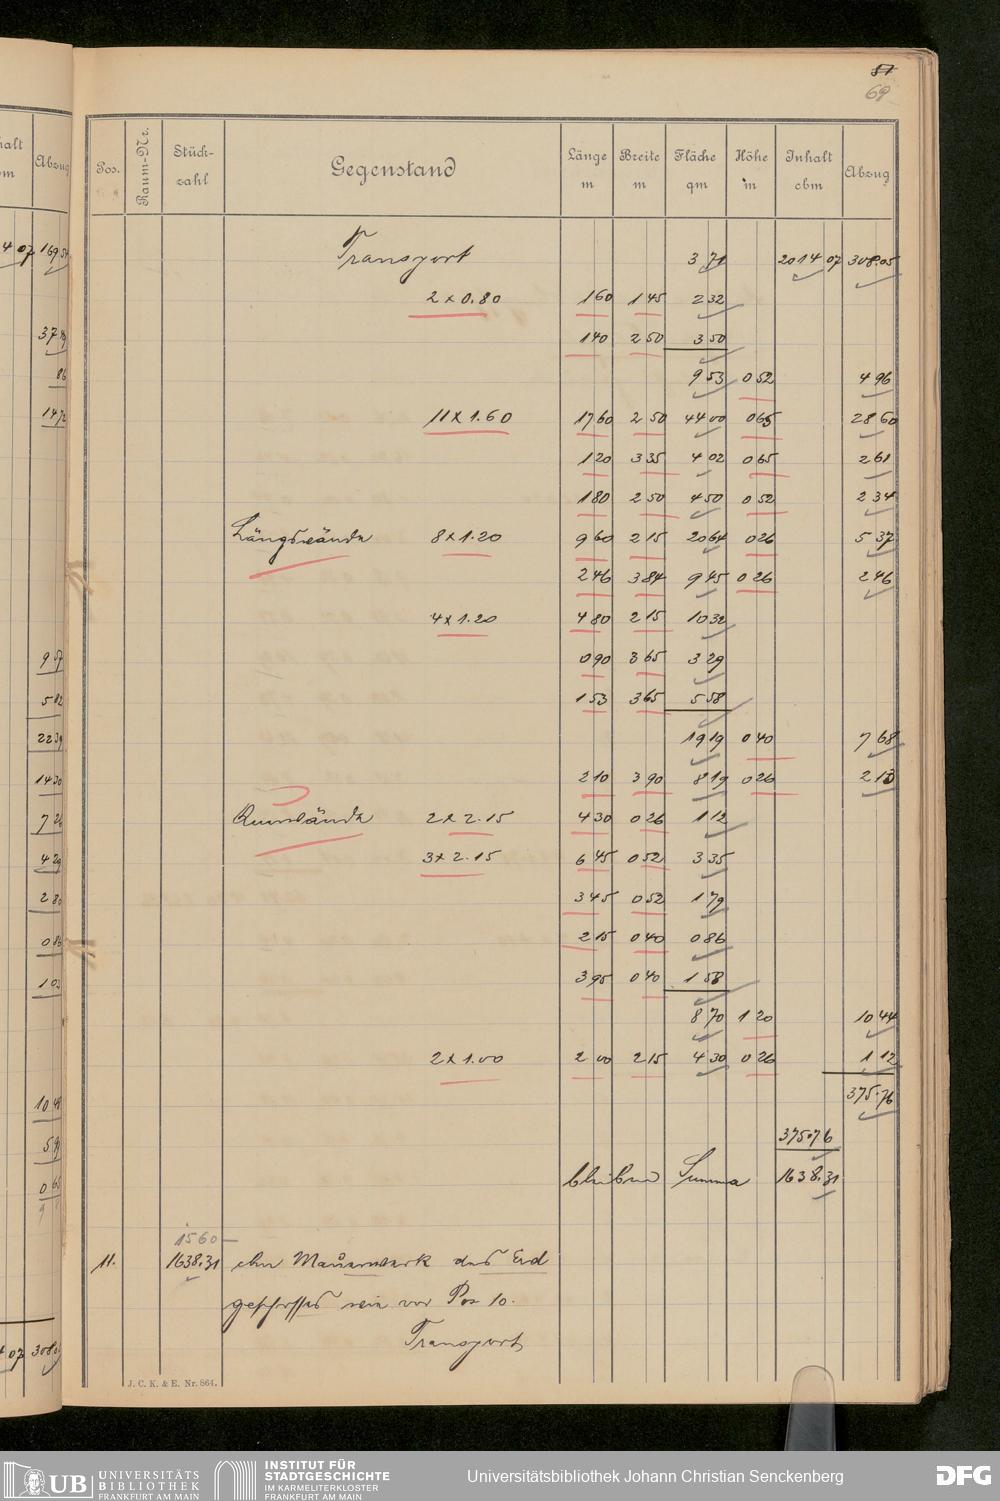 57
69
Pos. Raum-Nr. Stück-zahl Gegenstand Länge m Breite m Fläche qm Höhe m Inhalt cbm Abzug
Transport 3 71 2014 07 308.05
2 x 0.80 1 60 1 45 2 32
1 40 2 50 3 50
9 53 0 52 4 96
11 x 1.60 17 60 2 50 44 00 0 65 28 60
1 20 3 35 4 02 0 65 2 61
1 80 2 50 4 50 0 52 2 34
Längswände 8 x 1.20 9 60 2 15 20 64 0 26 5 37
2 46 3 84 9 45 0 26 2 46
4 x 1.20 4 80 2 15 10 32
0 90 3 65 3 29
1 53 3 65 5 58
19 19 0 40 7 68
2 10 3 90 8 19 0 26 2 13
2 x 2.15 4 30 0 26 1 12
3 x 2.15 6 45 0 52 3 35
3 45 0 52 1 79
2 15 0 40 0 86
3 95 0 40 1 58
8 70 1 20 10 44
2 x 1.00 2 00 2 15 4 30 0 26 1 12
375.76
375.76
bleiben Summa 1638.31
1560 –
11. 1638.31 cbm Mauerwerk des Erd
geschosses wie vor Pos 10.
Transport
J. C. K. & E. Nr. 864.
halt Abzug
4 07 169 54
14 72
9 57
5 82
22 39
14 30
7 26
4 29
2 80
0 86
1 03
UB UNIVERSITÄTS
BIBLIOTHEK
FRANKFURT AM MAIN
INSTITUT FÜR
STADTGESCHICHTE
IM KARMELITERKLOSTER
FRANKFURT AM MAIN
Universitätsbibliothek Johann Christian Senckenberg
DFG